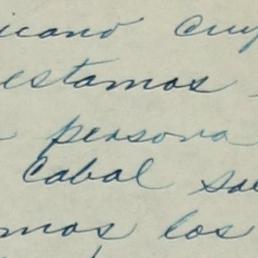 icano cuy
estamos
persona
cabal sa
mos los